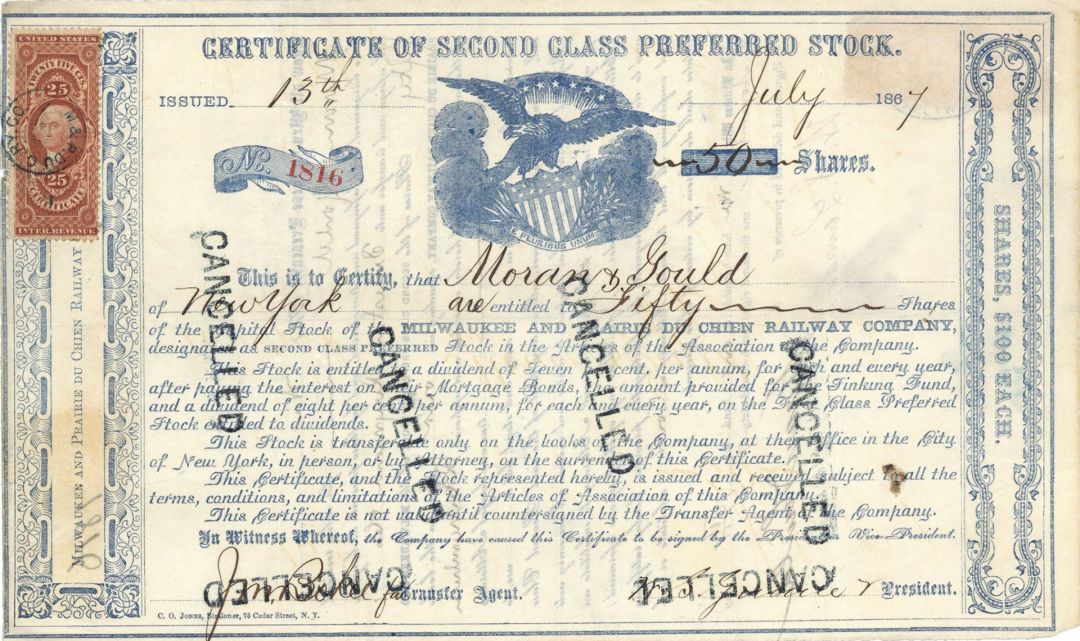 CERTIFICATE OF SECOND CLASS PREFERRED STOCK.
UNITED STATES
TWENTY FIVE CTS
25
25
CERTIFICATE
INTER. REVENUE
ISSUED 13th July 1867
No. 1816
50 Shares.
E PLURIBUS UNUM
This is to Certify, that Moran & Gould
of New York are entitled to Fifty Shares
of the Capital Stock of the MILWAUKEE AND PRAIRIE DU CHIEN RAILWAY COMPANY,
designated as SECOND CLASS PREFERRED Stock in the Articles of the Association of the Company.
This Stock is entitled to a dividend of Seven per cent. per annum, for each and every year,
after paying the interest on their Mortgage Bonds, the amount provided for the Sinking Fund,
and a dividend of eight per cent. per annum, for each and every year, on the First Class Preferred
Stock entitled to dividends.
This Stock is transferable only on the books of the Company, at their Office in the City
of New York, in person, or by Attorney, on the surrender of this Certificate.
This Certificate, and the Stock represented hereby, is issued and received subject to all the
terms, conditions, and limitations of the Articles of Association of this Company.
This Certificate is not valid until countersigned by the Transfer Agent of the Company.
In Witness Whereof, the Company have caused this Certificate to be signed by the President Vice-President.
Transfer Agent.
President.
C. O. JONES, Stationer, 76 Cedar Street, N. Y.
MILWAUKEE AND PRAIRIE DU CHIEN RAILWAY
SHARES, $100 EACH.
CANCELLED
CANCELLED
CANCELLED
CANCELLED
CANCELLED
CANCELLED
CANCELLED